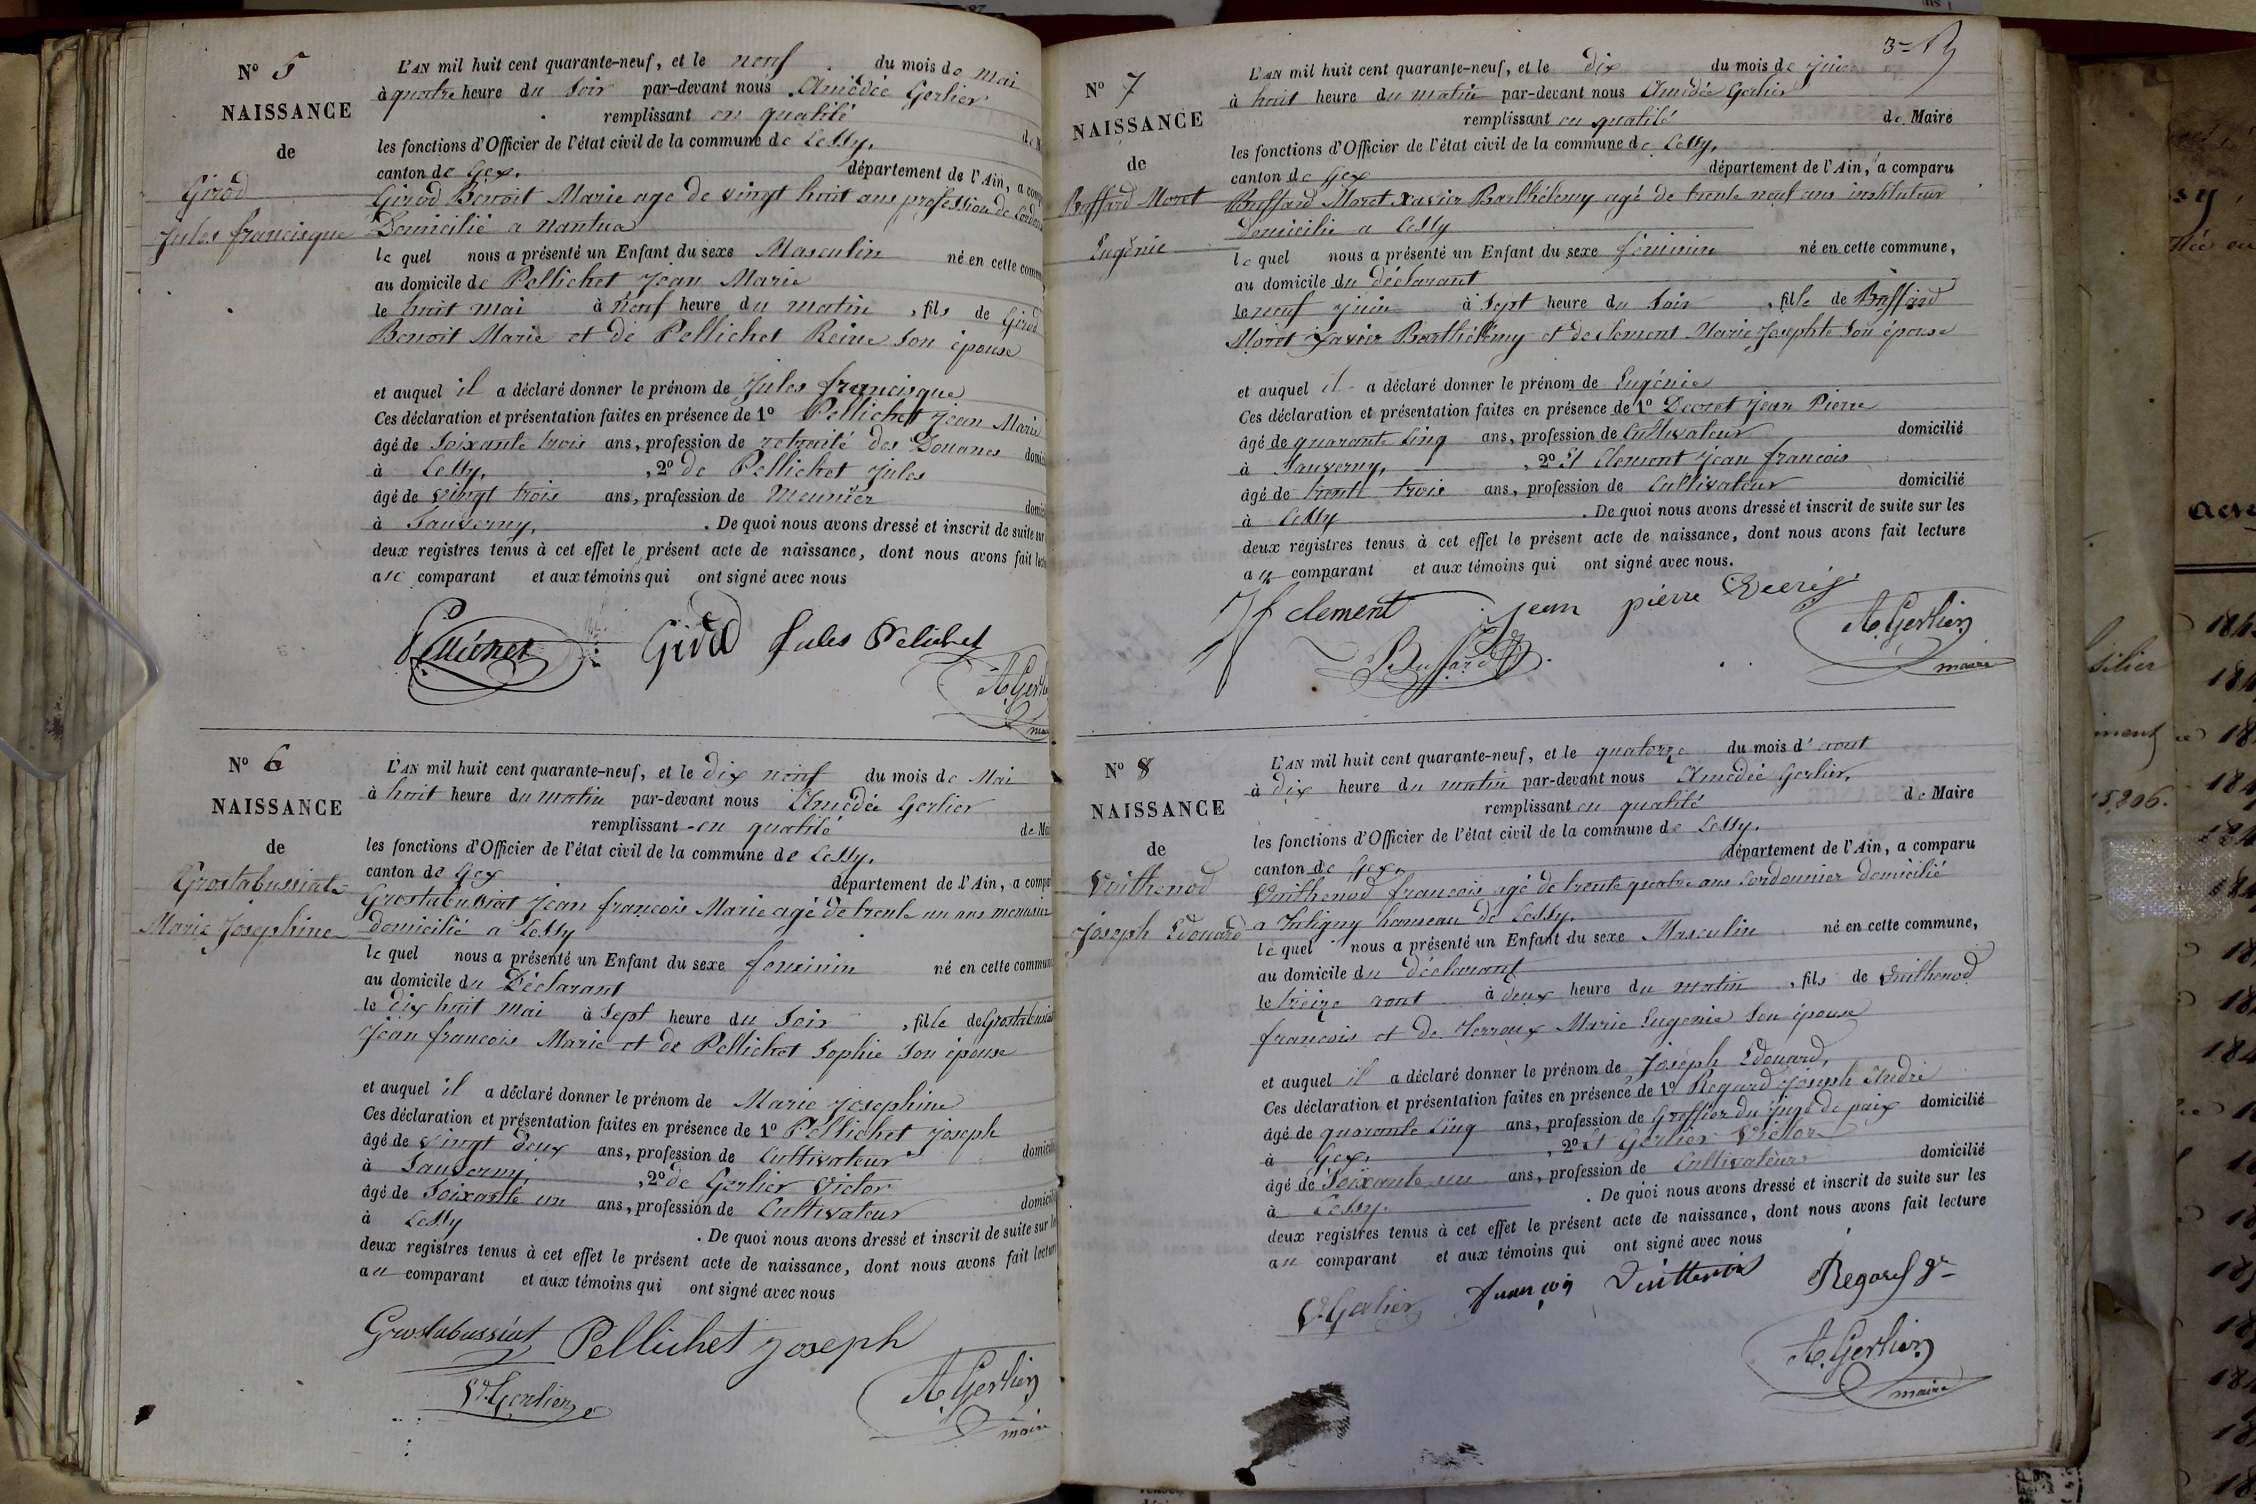 N° 5
NAISSANCE
de
Girod
Jules francisque
L'AN mil huit cent quarante-neuf, et le neuf du mois de mai
à quatre heure du Soir par-devant nous Amédée Gerlier
remplissant en qualité de M
les fonctions d'Officier de l'état civil de la commune de Cessy,
canton de Gex. département de l'Ain, a comp
Girod Benoit Marie age de vingt huit ans profession de Cordon
Domicilié a Nantua
le quel nous a présenté un Enfant du sexe Masculin né en cette commu
au domicile de Pellichet Jean Marie
le huit mai à Neuf heure du matin , fils de Girod
Benoit Marie et de Pellichet Reine Son épouse
et auquel il a déclaré donner le prénom de Jules francisque
Ces déclaration et présentation faites en présence de 1° Pellichet Jean Marie
âgé de Soixante trois ans, profession de retraité des Douanes domici
à Cessy, , 2° de Pellichet Jules
âgé de vingt trois ans, profession de Meunier domici
à Sauverny, . De quoi nous avons dressé et inscrit de suite sur
deux registres tenus à cet effet le présent acte de naissance, dont nous avons fait lectu
au comparant et aux témoins qui ont signé avec nous
Pellichet Girod Jules Pelichet
A. Gerli
mai
N° 6
NAISSANCE
de
Grostabussiat
Marie Josephine
L'AN mil huit cent quarante-neuf, et le dix neuf du mois de Mai
à huit heure du matin par-devant nous Amédée Gerlier
remplissant en qualité de Mai
les fonctions d'Officier de l'état civil de la commune de Cessy,
canton de Gex département de l'Ain, a compa
Grostabussiat Jean françois Marie agé de trente un ans menuisier
domicilié a Cessy
le quel nous a présenté un Enfant du sexe feminin né en cette commune
au domicile du Déclarant
le dix huit mai à Sept heure du Soir , fille de Grostabussiat
Jean francois Marie et de Pellichet Sophie Son épouse
et auquel il a déclaré donner le prénom de Marie Josephine
Ces déclaration et présentation faites en présence de 1° Pellichet Joseph
âgé de vingt deux ans, profession de Cultivateur domicilié
à Sauverny, , 2° de Gerlier Victor
âgé de Soixante un ans, profession de Cultivateur domicilié
à Cessy . De quoi nous avons dressé et inscrit de suite sur les
deux registres tenus à cet effet le présent acte de naissance, dont nous avons fait lecture
au comparant et aux témoins qui ont signé avec nous
Grostabussiat Pellichet Joseph
Vr. Gerlier
A. Gerlier
maire
N° 7
NAISSANCE
de
Buffard Moret
Eugénie
L'AN mil huit cent quarante-neuf, et le dix du mois de juin
à huit heure du matin par-devant nous Amédée Gerlier
remplissant en qualité de Maire
les fonctions d'Officier de l'état civil de la commune de Cessy,
canton de Gex département de l'Ain, a comparu
Buffard Moret Xavier Barthélemy agé de trente neuf ans instituteur
domicilié a Cessy
le quel nous a présenté un Enfant du sexe féminin né en cette commune,
au domicile du déclarant
le neuf juin à Sept heure du Soir , fille de Buffard
Moret Xavier Barthélemy et de Clement Marie Josephte Son épouse
et auquel il a déclaré donner le prénom de Eugénie
Ces déclaration et présentation faites en présence de 1° Decret Jean Pierre
âgé de quarante Cinq ans, profession de Cultivateur domicilié
à Sauverny, , 2° Et Clement Jean francois
âgé de trente trois ans, profession de Cultivateur domicilié
à Cessy . De quoi nous avons dressé et inscrit de suite sur les
deux registres tenus à cet effet le présent acte de naissance, dont nous avons fait lecture
au comparant et aux témoins qui ont signé avec nous.
J f clement jean pierre Decret
Buffard
A. Gerlier
maire
N° 8
NAISSANCE
de
Vuithenod
Joseph Edouard
L'AN mil huit cent quarante-neuf, et le quatorze du mois d' aout
à dix heure du matin par-devant nous Amédée Gerlier,
remplissant en qualité de Maire
les fonctions d'Officier de l'état civil de la commune de Cessy.
canton de Gex, département de l'Ain, a comparu
Vuithenod francois agé de trente quatre ans Cordonnier domicilié
a Intigny hameau de Cessy.
le quel nous a présenté un Enfant du sexe Masculin né en cette commune,
au domicile du déclarant
le treize aout à deux heure du matin , fils de Vuithenod
françois et de Verroux Marie Eugenie Son épouse
et auquel il a déclaré donner le prénom de Joseph Edouard,
Ces déclaration et présentation faites en présence de 1° Regard Joseph André
âgé de quarante Cinq ans, profession de Greffier du juge de paix domicilié
à Gex, , 2° Et Gerlier Victor
âgé de Soixante un ans, profession de Cultivateur domicilié
à Cessy. . De quoi nous avons dressé et inscrit de suite sur les
deux registres tenus à cet effet le présent acte de naissance, dont nous avons fait lecture
au comparant et aux témoins qui ont signé avec nous
Vr. Gerlier françois Vuittenod Regard gr
A. Gerlier
maire